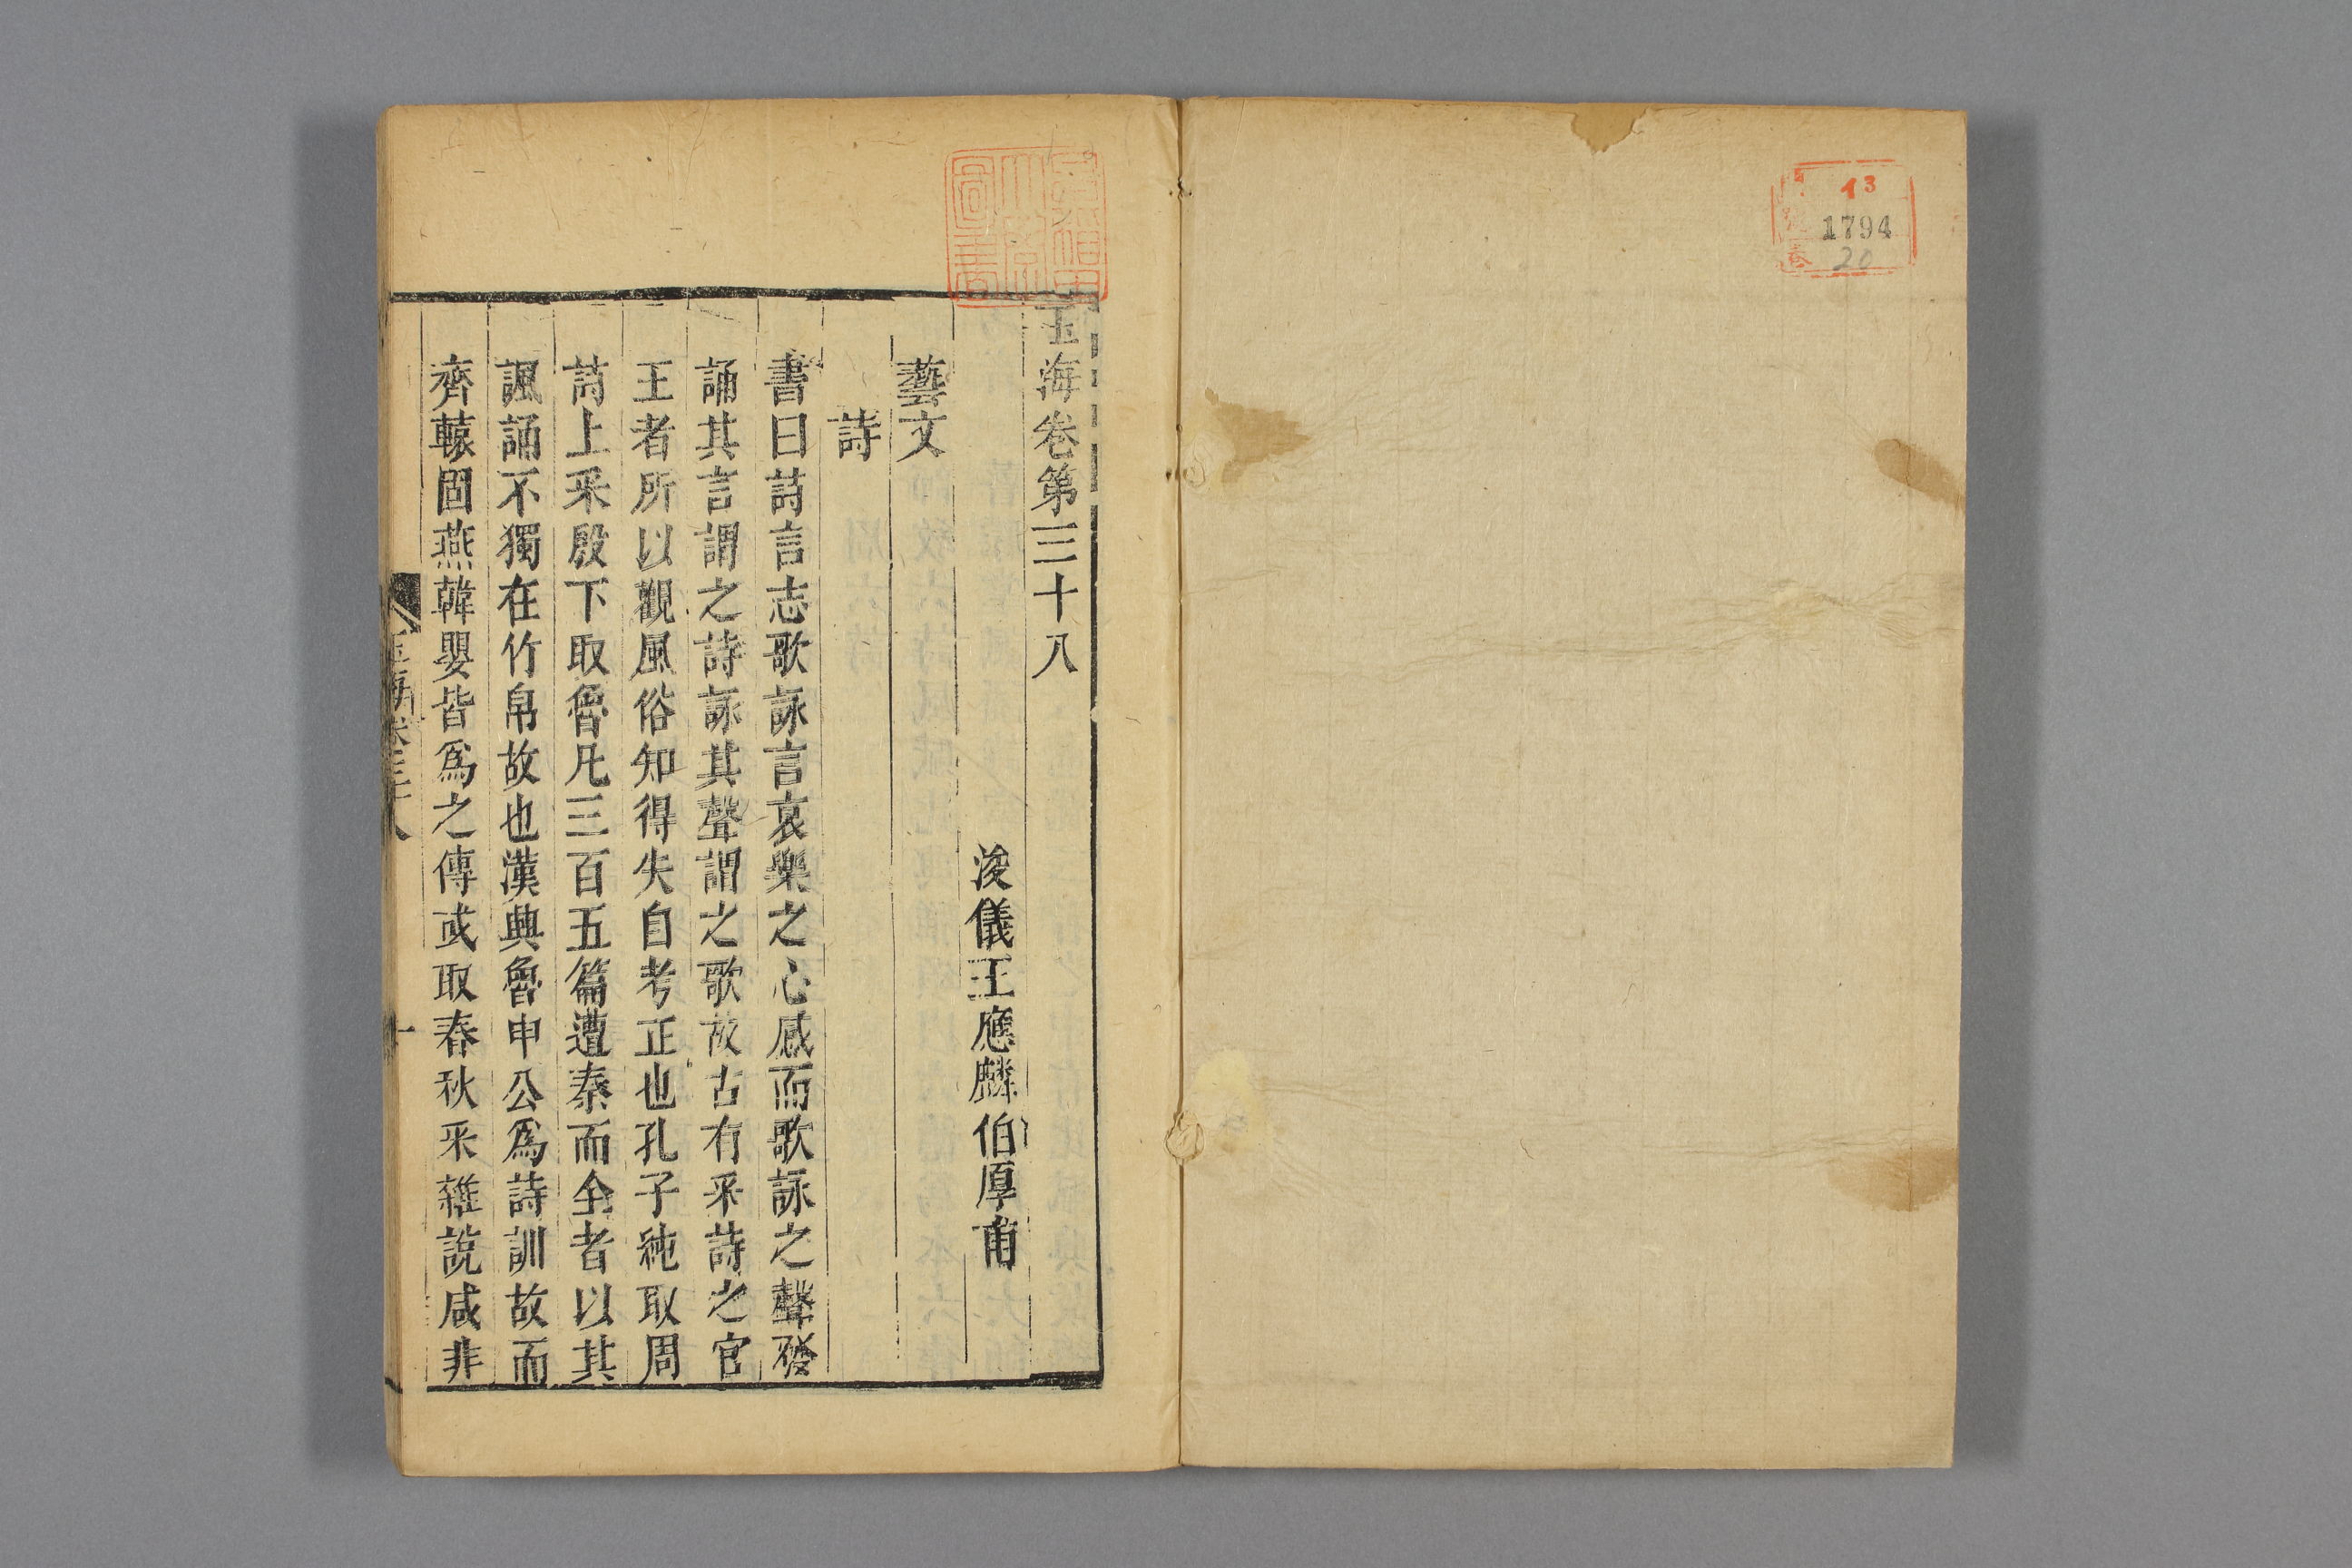 13
1794
20
玉海卷第三十八
浚儀王應麟伯厚甫
藝文
詩
書曰詩言志歌詠言哀樂之心感而歌詠之聲發
誦其言謂之詩詠其聲謂之歌故古有采詩之官
王者所以觀風俗知得失自考正也孔子純取周
詩上采殷下取魯凡三百五篇遭秦而全者以其
諷誦不獨在竹帛故也漢興魯申公爲詩訓故而
齊轅固燕韓嬰皆爲之傳或取春秋采雜說咸非
玉海卷三十八